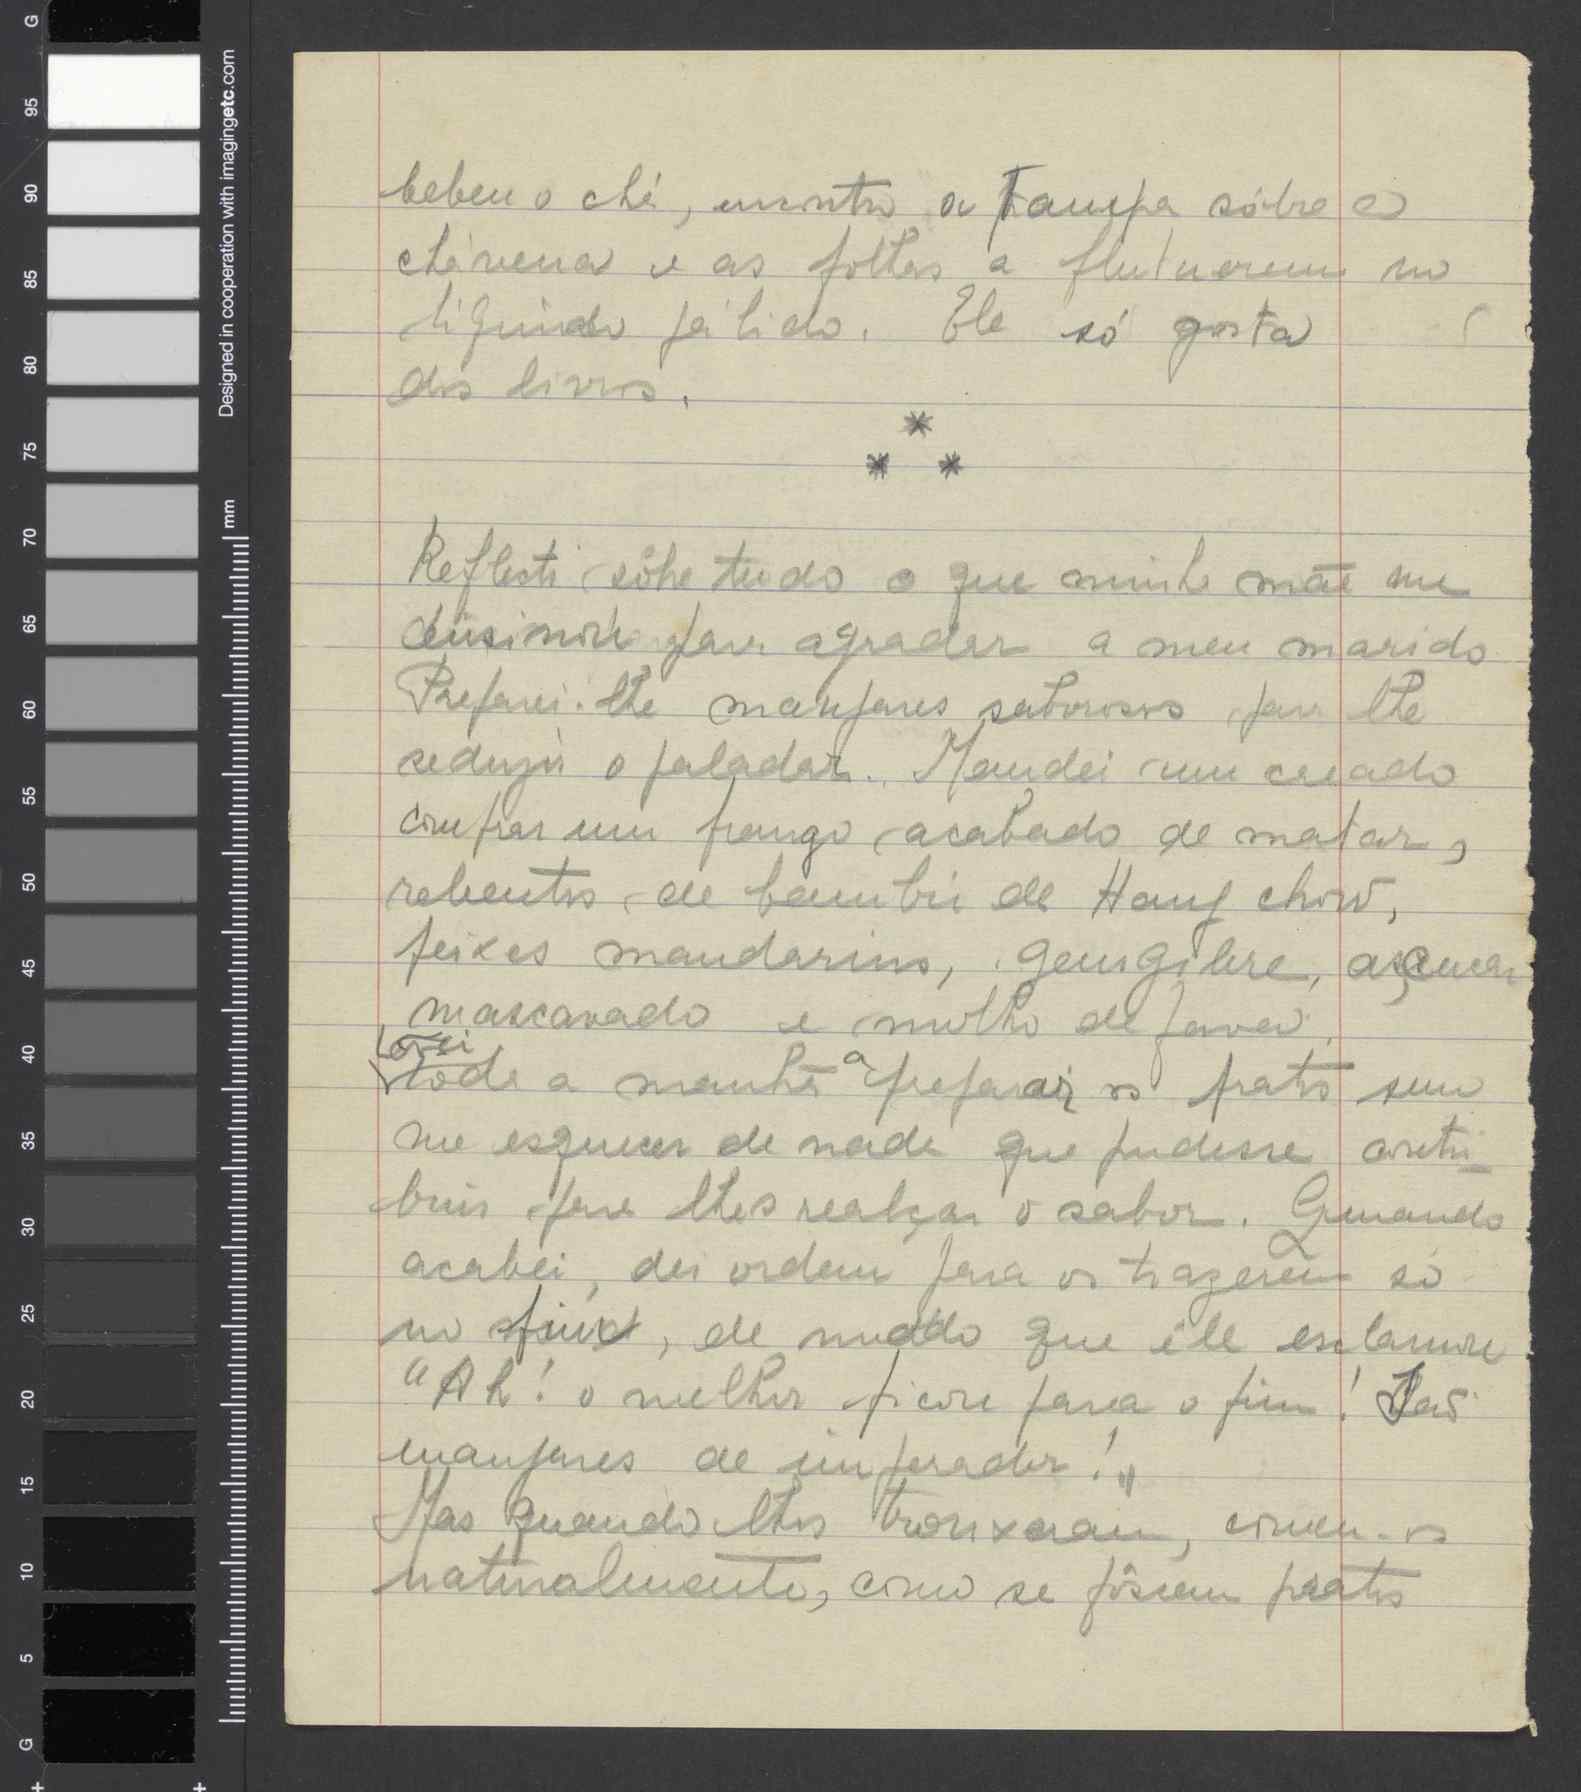 bebeu o chá, encontro a tampa sôbre a
chávena e as folhas a flutuarem no
líquido pálido. Ele só gosta
dos livros.
* * *
Reflecti sôbre tudo o que minha mãe me
ensinou para agradar a meu marido
Preparei-lhe manjares saborosos para lhe
seduzir o paladar. Mandei um creado
comprar um frango acabado de matar,
rebentos de bambú de Hang chow,
peixes mandarins, gengibre, açucar
mascavado e molho de fava.
Levei
toda a manhã a preparar os pratos sem
me esquecer de nada que pudesse contri-
buir para lhes realçar o sabor. Quando
acabei, dei ordem para os trazerem só
no fim, de modo que êle exclamou
"Ah! o melhor ficou para o fim! São
manjares de imperador!"
Mas quando lhos trouxeram, comeu-os
naturalmente, como se fôssem pratos
Designed in cooperation with imagingetc.com
mm
G
95
90
85
80
75
70
65
60
55
50
45
40
35
30
25
20
15
10
5
G